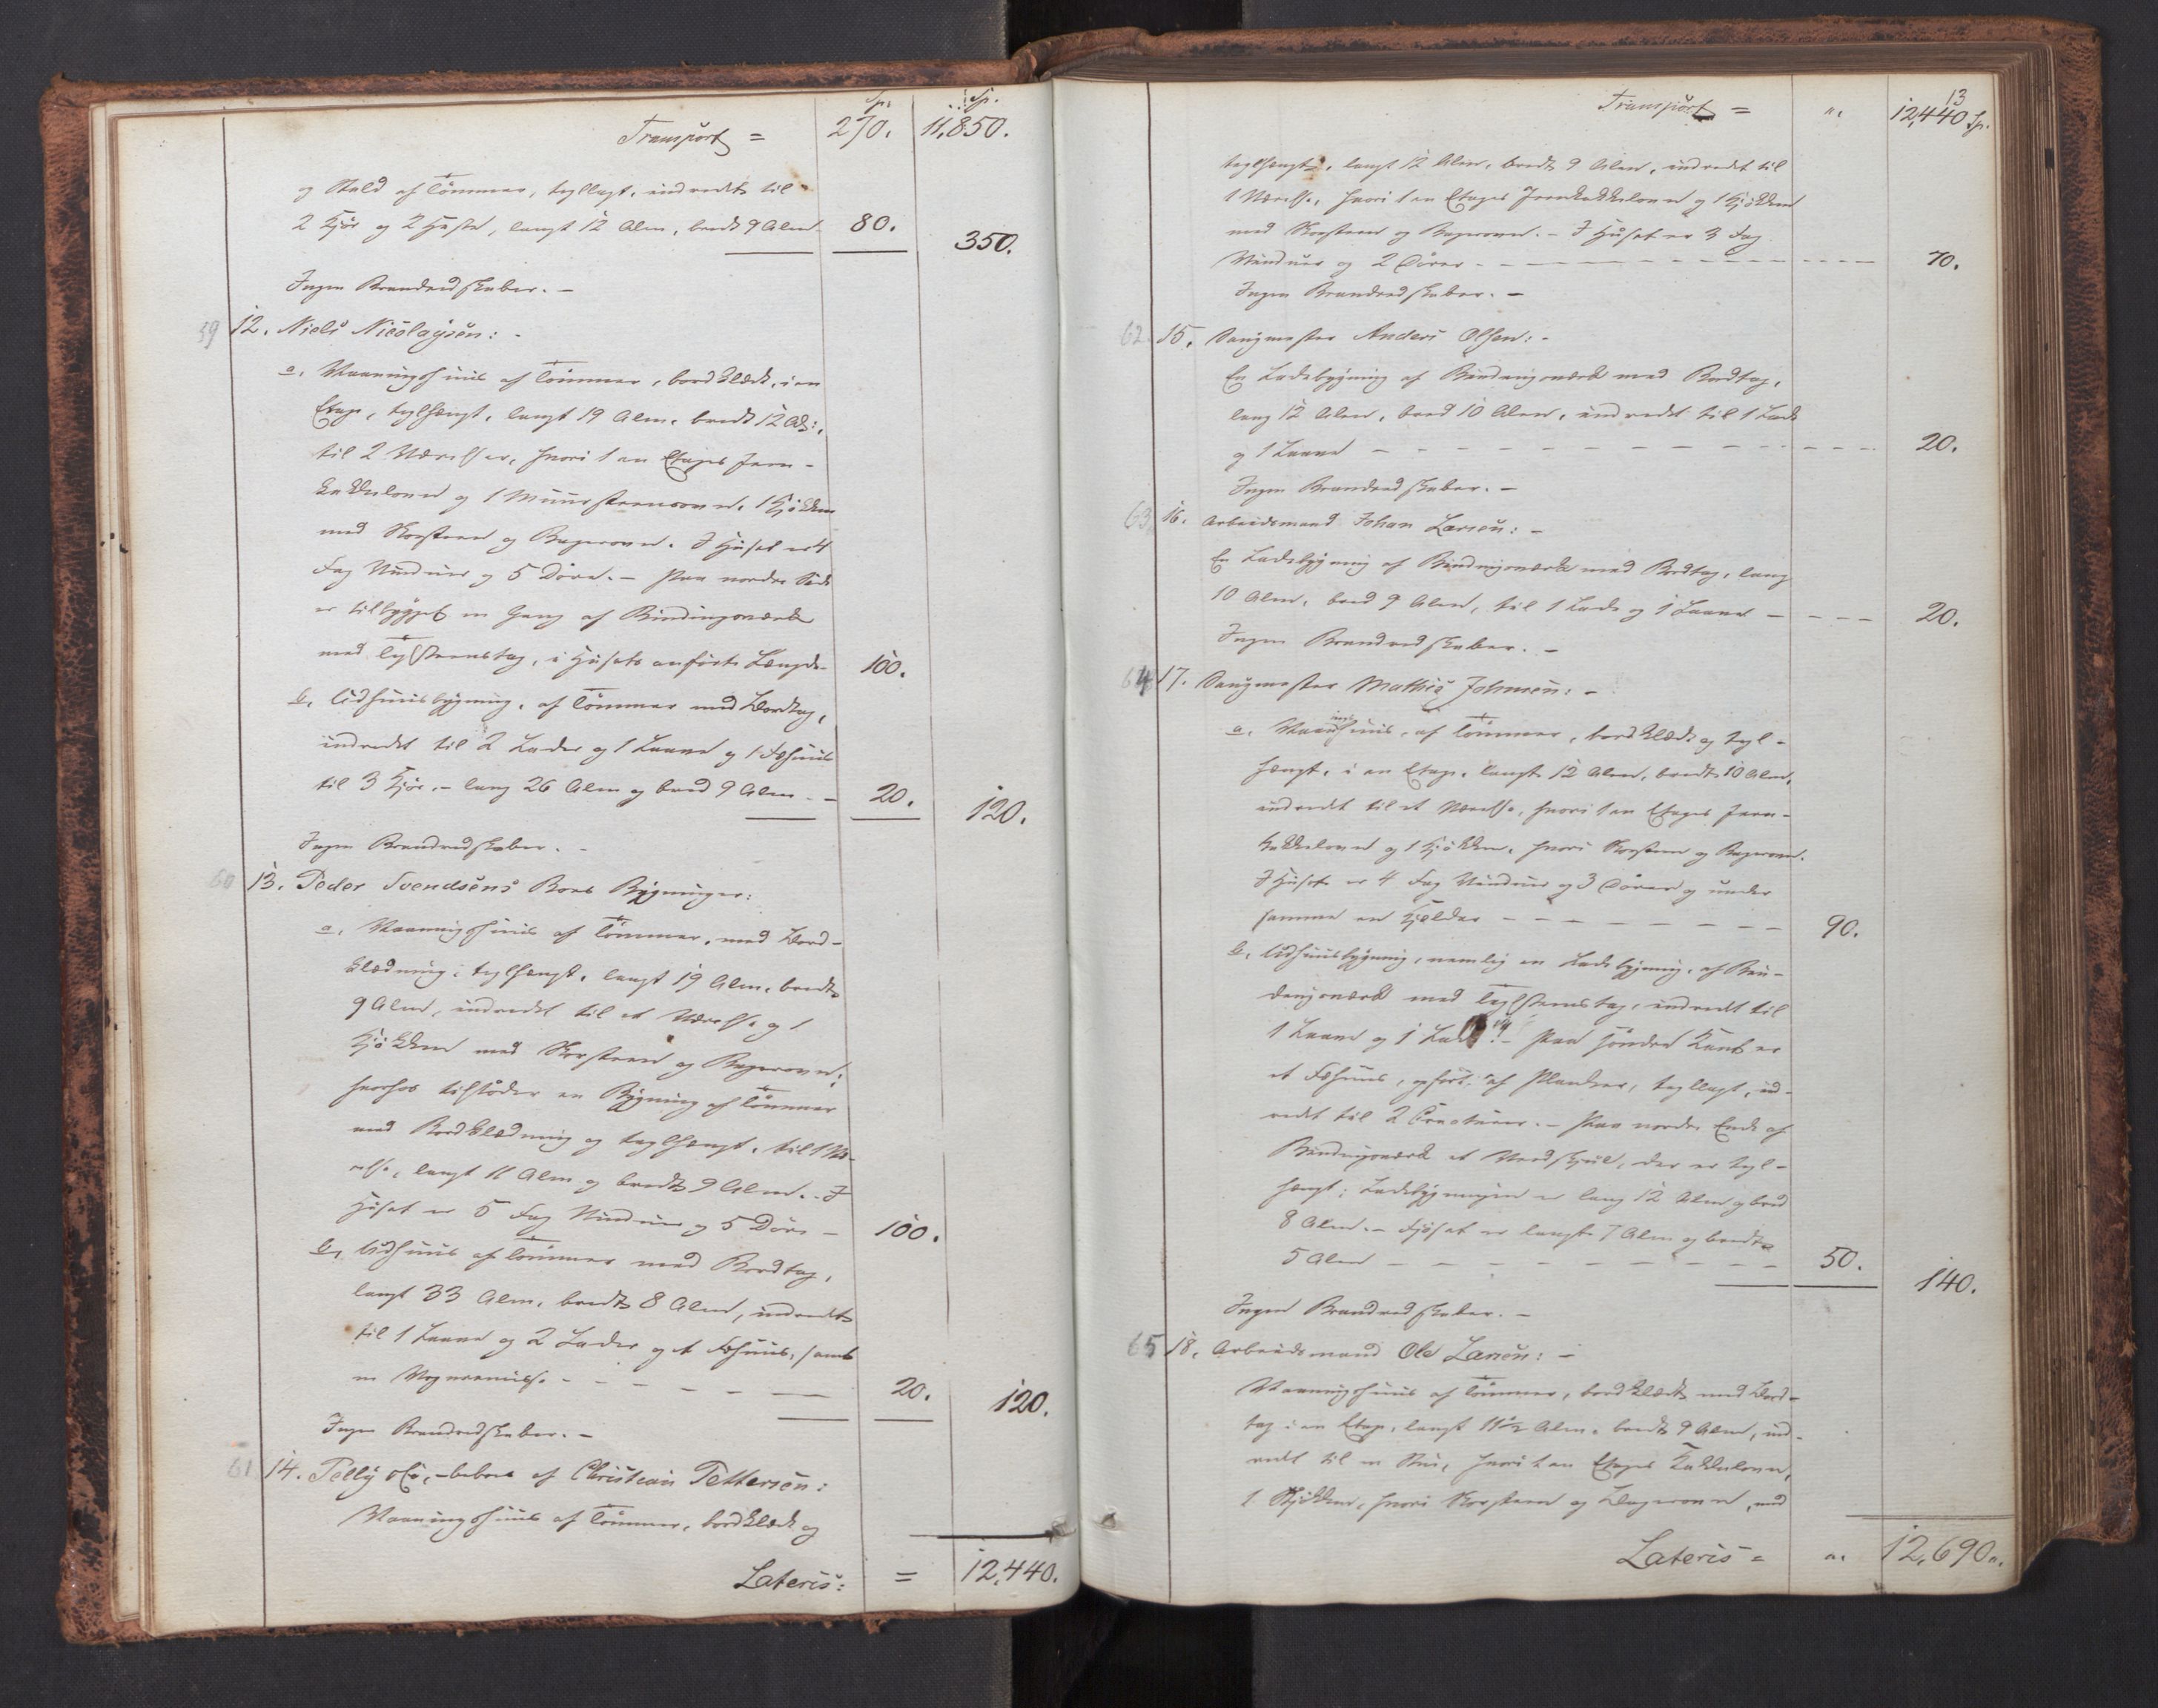 Sp. Sp.
Transport = 270. 11,850.
og Stald af Tømmer, tegllagt, indredet til
2 Kjør og 2 Heste, langt 12 Alen, bredt 9 Alen 80.
350.
Ingen Brandredskaber. –
59 12. Niels Nicolaysen: –
a, Vaaningshuus af Tømmer, bordklædt, i en
Etage, teglhængt, langt 19 Alen, bredt 12 Al:,
til 2 Værelser, hvori 1 en Etages Jern-
kakkelovn og 1 Muursteensovn, 1 Kjøkken
med Skorsteen og Bagerovn. I Huset er 4
Fag Vinduer og 5 Døre. – Paa nordre Side
er tilbygget en Gang af Bindingsværk
med Teglsteenstag, i Husets anførte Længde 100.
b, Udhuusbygning, af Tømmer med Bordtag,
indredet til 2 Lader og 1 Laave og 1 Fæhuus
til 3 Kjør. – lang 26 Alen og bred 9 Alen – 20.
120.
Ingen Brandredskaber. –
60 13. Peder Svendsens Boes Bygninger:
a, Vaaningshuus af Tømmer, med Bord-
klædning, teglhængt, langt 19 Alen, bredt
9 Alen, indredet til et Værelse og 1
Kjøkken med Skorsteen og Bagerovn;
hvorhos tilstøder en Bygning af Tømmer
med Bordklædning og teglhængt, til 1 Væ-
relse, langt 11 Alen og bredt 9 Alen. – I
Huset er 5 Fag Vinduer og 5 Døre – 100.
b, Udhuus af Tømmer med Bordtag,
langt 33 Alen, bredt 8 Alen, indredet
til 1 Laave og 2 Lader og et Fæhuus, samt
en Vognremisse – – – – – – 20.
120.
Ingen Brandredskaber. –
61 14. beboet af Christian Pettersen:
Vaaningshuus af Tømmer, bordklædt og
Lateris: = 12,440.
13
Transport = ". 12,440 Sp.
teglhængt, langt 12 Alen, bredt 9 Alen, indredet til
1 Værelse, hvori 1 en Etages Jernkakkelovn og 1 Kjøkken
med Skorsteen og Bagerovn. – I Huset er 3 Fag
Vinduer og 2 Døre – – – – – – 70.
Ingen Brandredskaber. –
62 15. Saugmester Anders Olsen: –
En Ladebygning af Bindingsværk med Bordtag,
lang 12 Alen, bred 10 Alen, indredet til 1 Lade
og 1 Laave – – – – – – 20.
Ingen Brandredskaber. –
63 16. Arbeidsmand Johan Larsen: –
En Ladebygning af Bindingsværk med Bordtag, lang
10 Alen, bred 9 Alen, til 1 Lade og 1 Laave – – – – 20.
Ingen Brandredskaber. –
64 17. Saugmester Mathis Johnsen: –
a, Vaaningshuus, af Tømmer, bordklædt og tegl-
hængt, i en Etage, langt 12 Alen, bredt 10 Alen,
indredet til et Værelse, hvori 1 en Etages Jern-
kakkelovn og 1 Kjøkken, hvori Skorsteen og Bagerovn.
I Huset er 4 Fag Vinduer og 3 Døre og under
samme en Kjelder – – – – – – 90.
b, Udhuusbygning, nemlig en Ladebygning, af Bin-
dingsværk med Teglsteenstag, indredet til
1 Laave og 1 Lade. – Paa søndre Kant er
et Fæhuus, opført af Planker, tegllagt, ind-
redet til 2 Creaturer. – Paa nordre Ende af
Bindingsværk et Vedskjul, der er tegl-
hængt; Ladebygningen er lang 12 Alen og bred
8 Alen. – Fjøset er langt 7 Alen og bredt
5 Alen – – – – – – 50.
140.
Ingen Brandredskaber. –
65 18. Arbeidsmand Ole Larsen: –
Vaaningshuus af Tømmer, bordklædt med Bord-
tag i en Etage, langt 11½ Alen, bredt 9 Alen, ind-
redet til en Stue, hvori 1 en Etages Kakkelovn,
1 Kjøkken, hvori Skorsteen og Bagerovn, med
Lateris = ". 12,690.